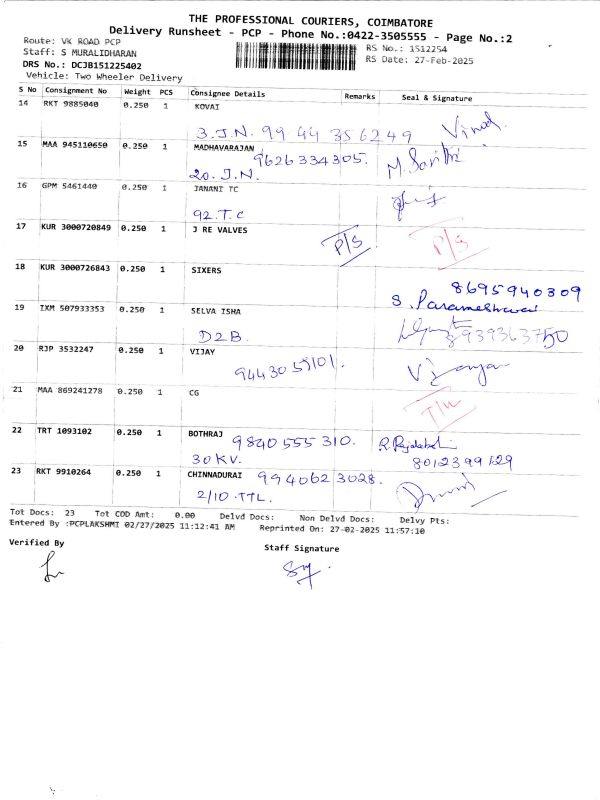 THE PROFESSIONAL COURIERS, COIMBATORE
Delivery Runsheet - PCP - Phone No.:0422-3505555 - Page No.:2
Route: VK ROAD PCP
RS No.: 1512254
Staff: S MURALIDHARAN
RS Date: 27-Feb-2025
DRS No.: DCJB151225402
Vehicle: Two Wheeler Delivery
S No Consignment No Weight PCS Consignee Details Remarks Seal & Signature
14 RKT 9885040 0.250 1 KOVAI
3.J.N. 99 44 356249 Vinod
15 MAA 945110650 0.250 1 MADHAVARAJAN 9626334305.
20.J.N.
16 GPM 5461440 0.250 1 JANANI TC
92.T.C
17 KUR 3000720849 0.250 1 J RE VALVES P/S P/S
18 KUR 3000726843 0.250 1 SIXERS
8695940309
S. Parameshwari
19 IXM 507933353 0.250 1 SELVA ISHA
D2B.
20 RJP 3532247 0.250 1 VIJAY
21 MAA 869241278 0.250 1 CG
22 TRT 1093102 0.250 1 BOTHRAJ 9840555310.
30KV. 8012399129
23 RKT 9910264 0.250 1 CHINNADURAI 9940623028.
2/10.TTL.
Tot Docs: 23 Tot COD Amt: 0.00 Delvd Docs: Non Delvd Docs: Delvy Pts:
Entered By :PCPLAKSHMI 02/27/2025 11:12:41 AM Reprinted On: 27-02-2025 11:57:10
Verified By
Staff Signature